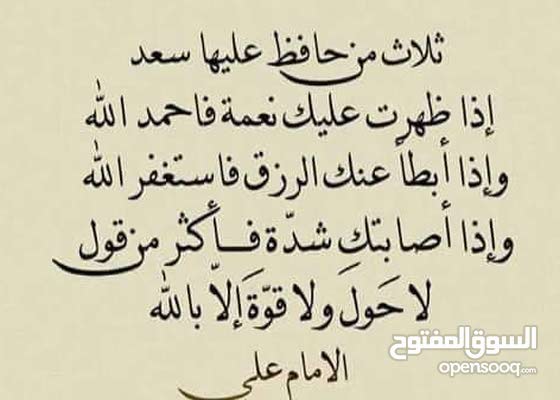 ثلاث من حافظ عليها سعد
إذا ظهرت عليك نعمة فاحمد الله
وإذا أبطأ عنك الرزق فاستغفر الله
وإذا أصابتكِ شدّة فــأكثر من قول
لا حَولَ ولا قوّةَ إلاّ بالله
الامام علي
السوق المفتوح
opensooq.com